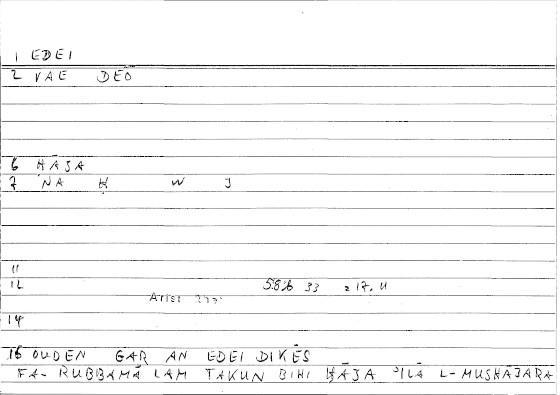 1 EDEI
2 VAE DEO
6 ḤĀJA
7 NA Ḥ W J
11
12 5.8/6 33 = 17.11
Arist
14
16 OUDEN GAR AN EDEI DIKĒS
FA- RUBBAMĀ LAM TAKUN BIHI ḤĀJA ʾILĀ L-MUSHĀJARA